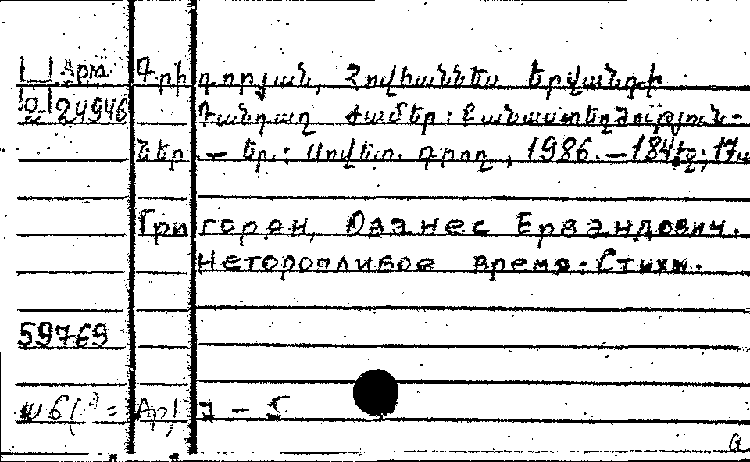 Գրիգորյան, Հովհաննես Երվանդի
24946 Դանդաղ ժամեր: Բանաստեղծություն-
ներ. – Եր.: Սովետ. գրող, 1986. – 184էջ;
Григорян, Ованес Ервандович.
Неторопливое время. Стихи.
59769